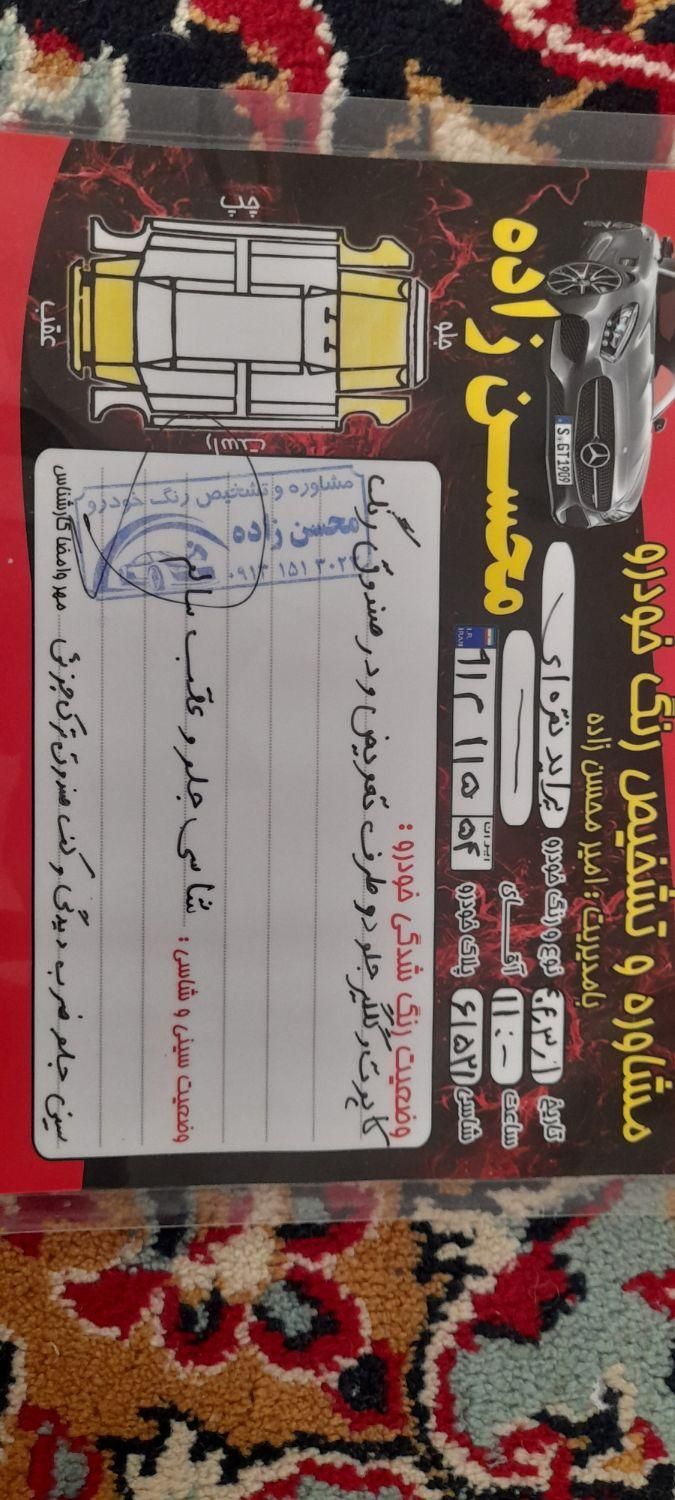 مشاوره و تشخیص رنگ خودرو
بامدیریت : امیر محسن زاده
محسن زاده
S GT 1909
نوع و رنگ خودرو پراید نقره ای
تاریخ
آقای
ساعت ۱۱:۰۰
پلاک خودرو
I.R. IRAN
ایران ۵۴
شاسی ۶۱۵۲۱
جلو
عقب
چپ
راست
وضعیت رنگ شدگی خودرو :
کاپوت و گلگیر جلو دو طرف تعویض و در صندوق رنگ
وضعیت سینی و شاسی :
شاسی جلو و عقب سالم
سینی جلو ضرب دیدگی و کف صندوق ترک جزئی
مهر و امضا کارشناس
مشاوره و تشخیص رنگ خودرو
محسن زاده